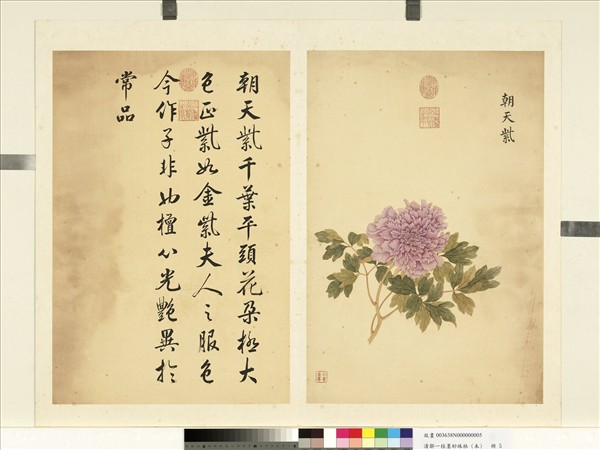 朝天紫
朝天紫千葉平頭花朶極大
色正紫如金紫夫人之服色
今作子非也檀心光艷異於
常品
故畫 003638N000000005
清鄒一桂墨妙珠林(未) 冊 5